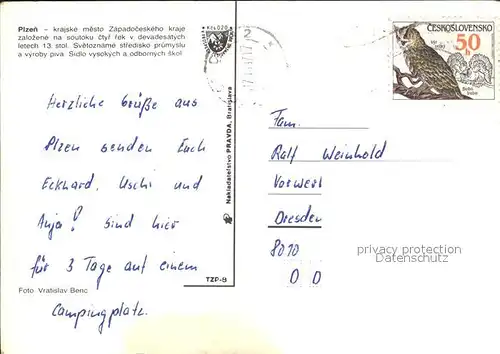 Plzeň – krajské město Západočeského kraje
založené na soutoku čtyř řek v devadesátých
letech 13. stol. Světoznámé středisko průmyslu
a výroby piva. Sídlo vysokých a odborných škol
Herzliche Grüße aus
Plzen senden Euch
Eckhard, Uschi und
Anja! Sind hier
für 3 Tage auf einem
Campingplatz.
Foto Vratislav Benc
TZP-8
Nakladatelstvo PRAVDA, Bratislava
Kčs
ČESKOSLOVENSKO
50 h
Fam.
Ralf Weinhold
Vorwerl
Dresden
8010
DD
privacy protection
Datenschutz